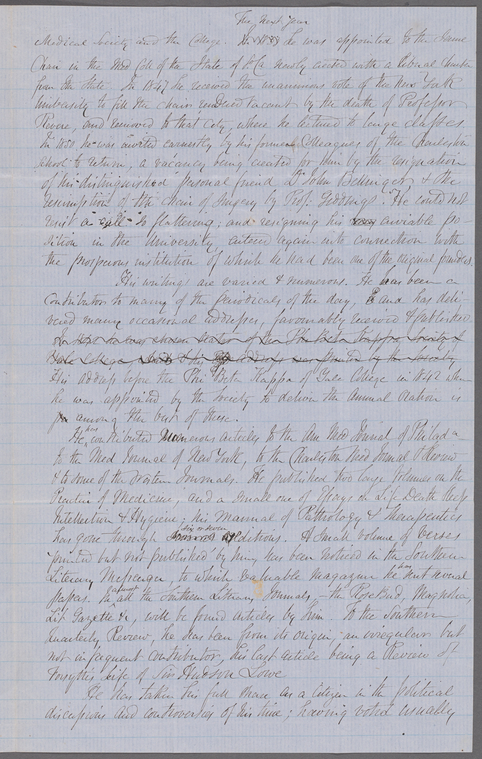 The next year
Medical Society and the College. In 1833 he was appointed to the same
Chair in the Med Col of the State of S C newly created with a liberal Charter
from the State. In 1847 he received the unanimous vote of the New York
University to fill the chair rendered vacant by the death of Professor
Revere, and removed to that City, where he lectured to large classes.
In 1850 he was invited earnestly by his former Colleagues of the Charleston
School to return, a vacancy being created for him by the resignation
of his distinguished personal friend Dr John Bellinger, & the
resumption of the Chair of Surgery by Prof. Geddings. He could not
resist a call so flattering; and resigning his very enviable po-
sition in the University, entered again into connection with
the prosperous institution of which he had been one of the original founders.
His writings are varied & numerous. He has been a
Contributor to many of the periodicals of the day, and has deli-
vered many occasional addresses, favourably received & published.
by the Phi Beta Kappa Society of
Yale College by the Society
His address before the Phi Beta Kappa of Yale College in 1842 when
he was appointed by the Society to deliver the annual Oration is
among the best of these.
He has contributed numerous articles to the Am Med Journal of Philada
to the Med Journal of New York, to the Charleston Med Journal & Review
& to some of the Boston Journals. He published two large Volumes on the
Practice of Medicine, and a small one of Essays on Life Death Sleep
Intellection & Hygiene; his Manual of Pathology & Therapeutics
has gone through six or seven editions. A Small volume of verses
printed but not published by him, has been noticed in the Southern
Literary Messenger, to which valuable magazine he has sent several
papers. In almost all the Southern Literary Journals, the Rose Bud, Magnolia,
Lit Gazette &c, will be found articles by him. To the Southern
Quarterly Review, he has been from its origin, an irregular but
not infrequent contributor, his last article being a Review of
Forsyths Life of Sir Hudson Lowe
He has taken his full share as a citizen in the political
discussions and controversies of his time; having voted usually